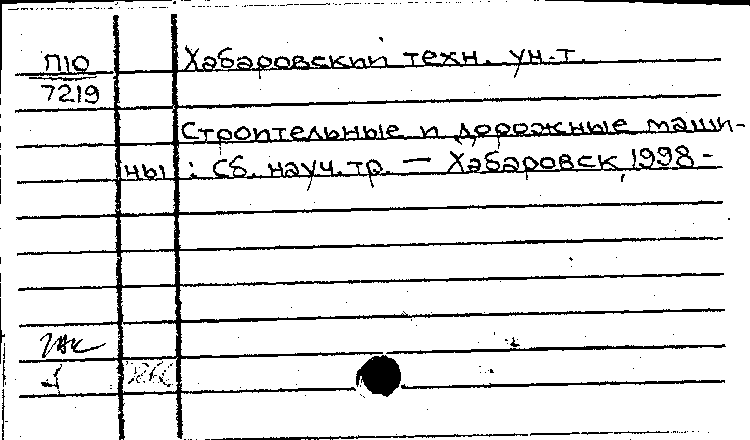 П10 Хабаровский техн. ун-т.
7219
Строительные и дорожные маши-
ны : Сб. науч. тр. — Хабаровск, 1998 -